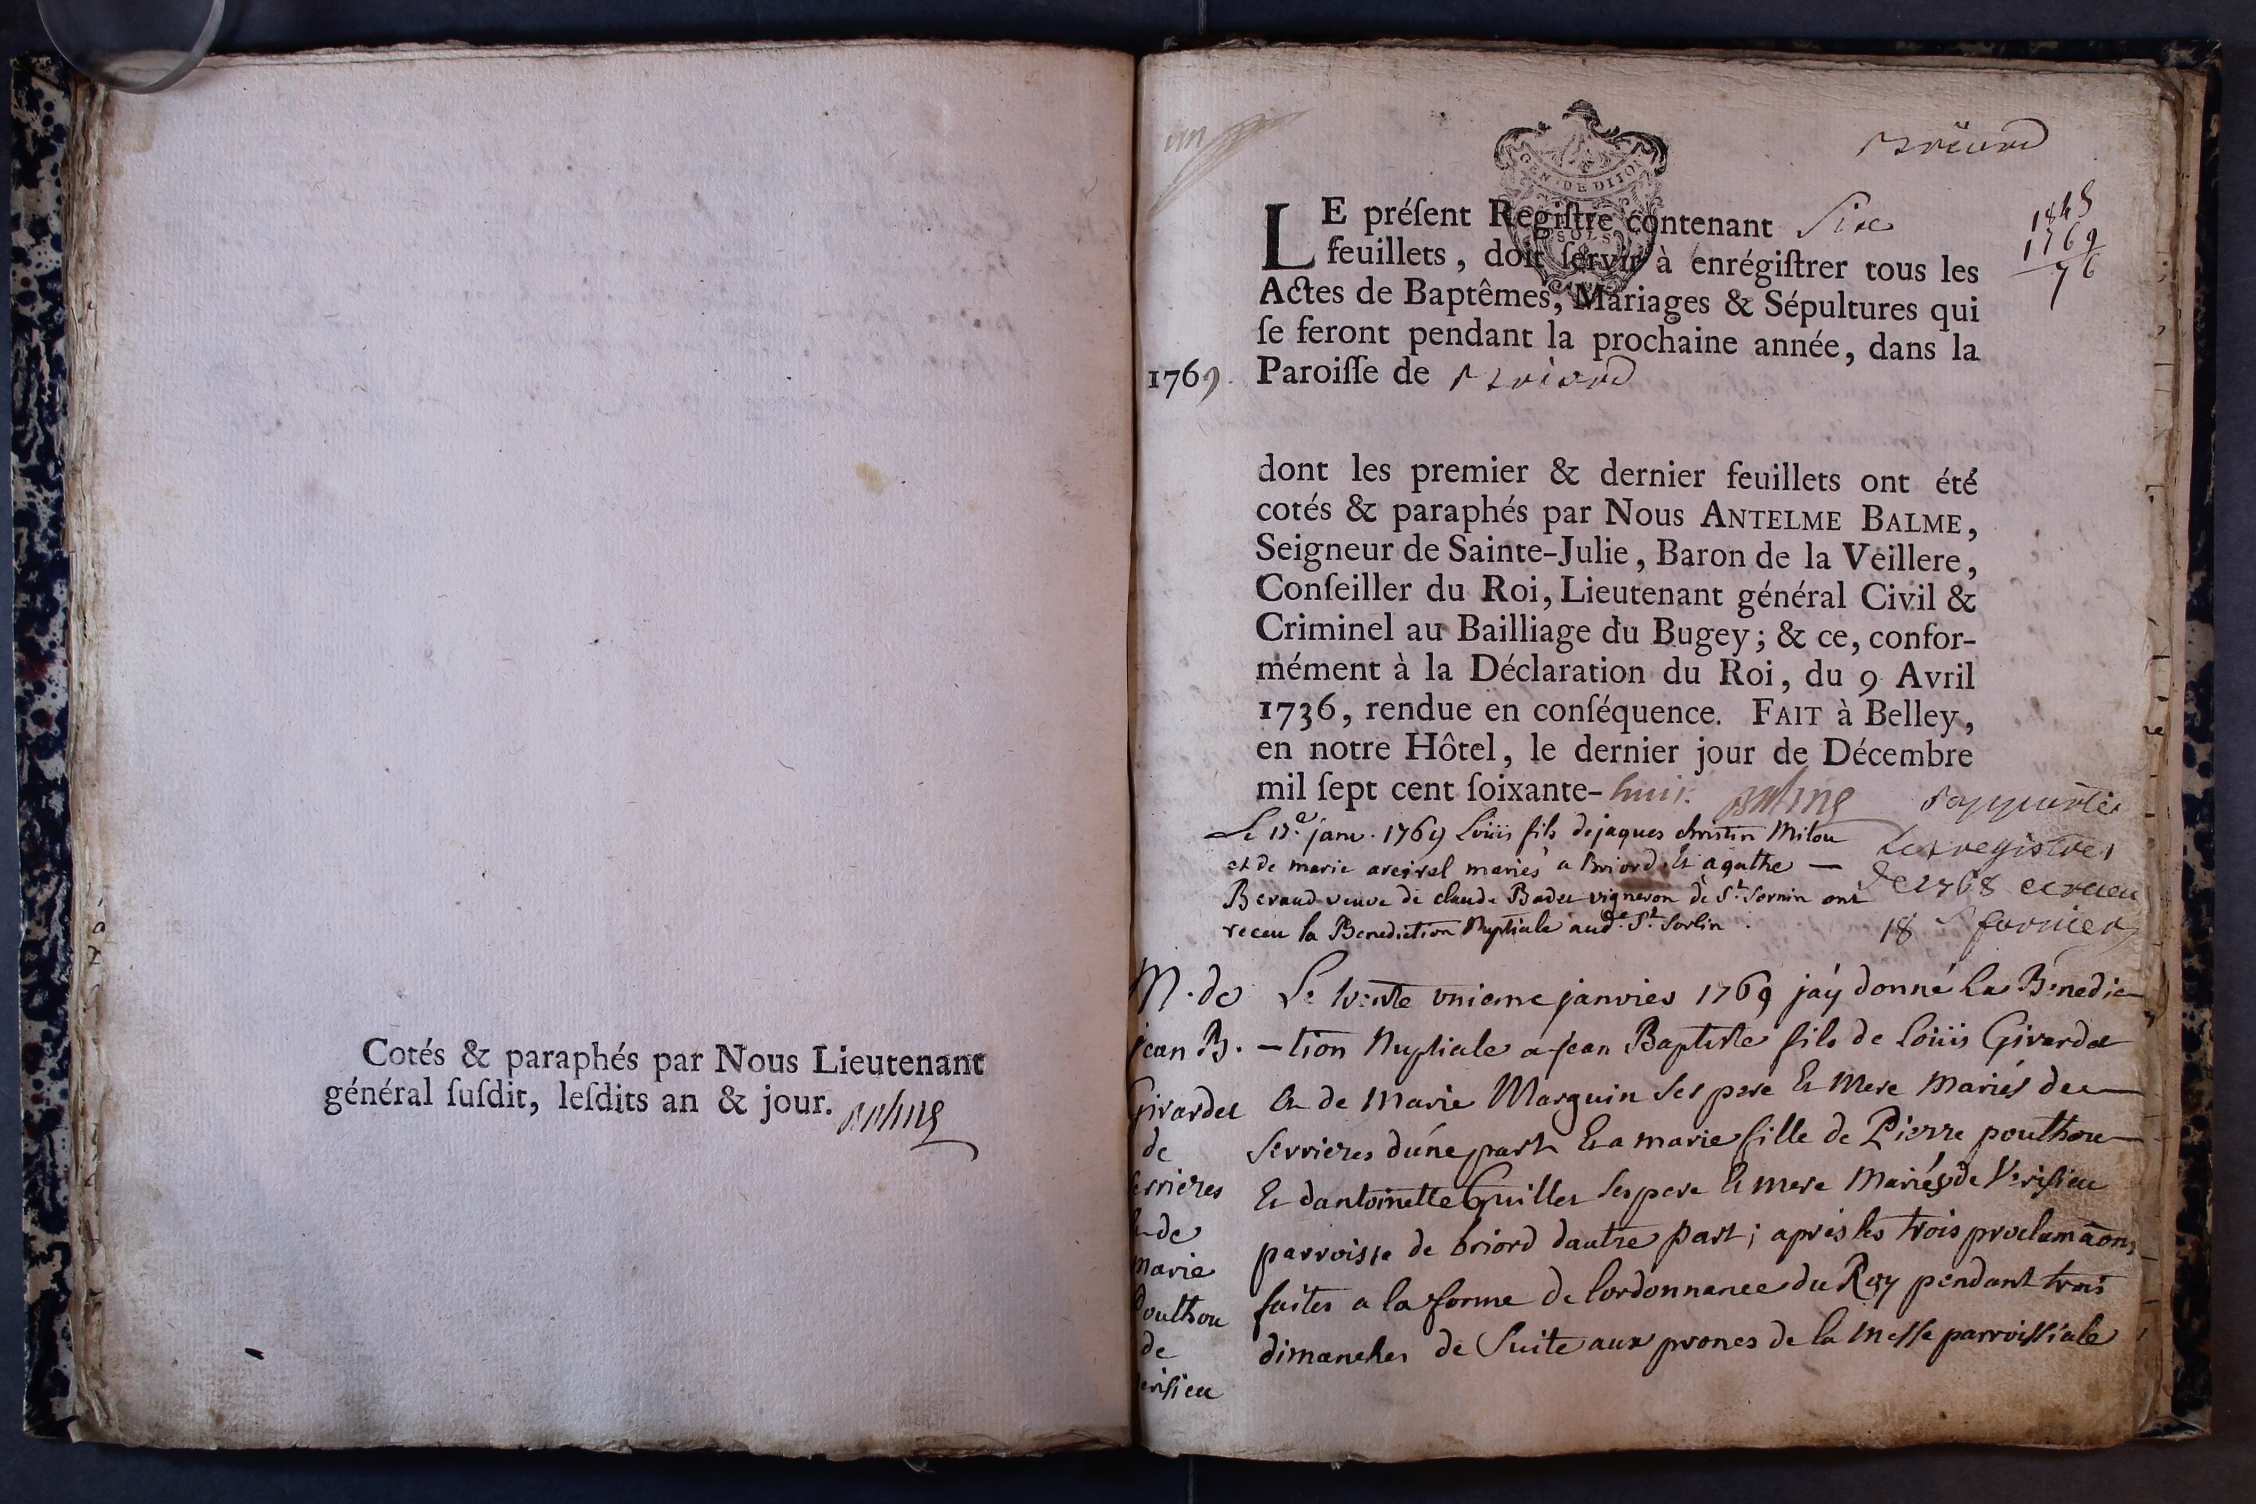 Cotés & paraphés par Nous Lieutenant
général ſuſdit, leſdits an & jour. Balme
un
Briord
GEN. DE DIJON
SOLS
1845
1769
76
LE préſent Regiſtre contenant Six
feuillets, doit ſervir à enrégiſtrer tous les
Actes de Baptêmes, Mariages & Sépultures qui
ſe feront pendant la prochaine année, dans la
1769. Paroiſſe de Briord
dont les premier & dernier feuillets ont été
cotés & paraphés par Nous ANTELME BALME,
Seigneur de Sainte-Julie, Baron de la Veillere,
Conſeiller du Roi, Lieutenant général Civil &
Criminel au Bailliage du Bugey; & ce, confor-
mément à la Déclaration du Roi, du 9 Avril
1736, rendue en conſéquence. FAIT à Belley,
en notre Hôtel, le dernier jour de Décembre
mil ſept cent ſoixante-huit. Balme
Le 17.e janv. 1769 Loüis fils de jaques christin Milou
et de marie mariés a Briord Et agathe —
Beraud veuve de claude Badet vigneron de St. Sornin ont
receu la Benediction Nuptiale aud. St. Sorlin.
rapporté
les registres
de 1768 et receu
18 s
M. de
jean B.
Girardet
de
serrieres
& de
marie
Pouthou
de
verisieu
Le trente unieme janvier 1769 jaÿ donné la Benedic
-tion Nuptiale a jean Baptiste fils de Loüis Girardet
Et de Marie Marguin ses pere Et Mere Mariés de
Serrieres dúne part Et a marie fille de Pierre pouthou
Et dantoinette Guillet ses pere Et mere Mariés de Verisieu
parroisse de briord dautre part; aprés les trois proclamãons
faites a la forme de lordonnance du Roy pendant trois
dimanches de Suite aux prones de la Messe parroissiale